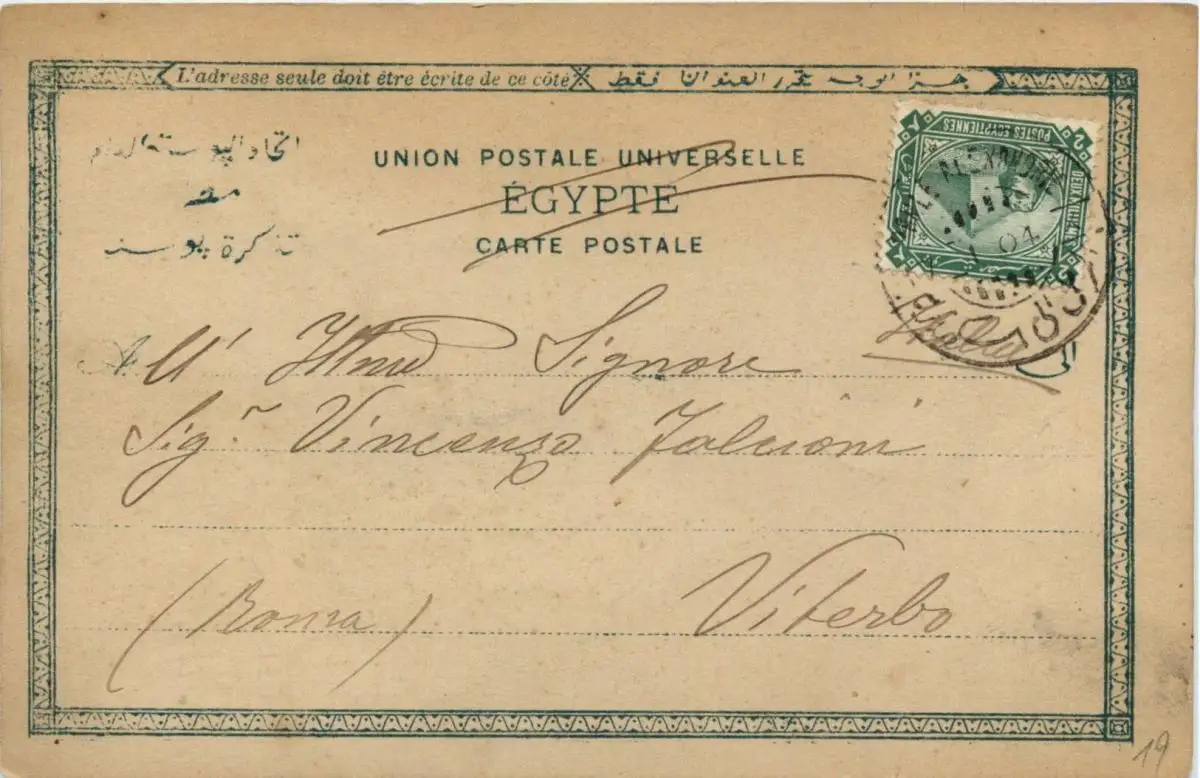 L'adresse seule doit être écrite de ce côté هذا الوجه محرر العنوان فقط
اتحاد البوستة العام
UNION POSTALE UNIVERSELLE
مصر
ÉGYPTE
تذكرة بوستة
CARTE POSTALE
POSTES EGYPTIENNES
2
DEUX MILLIEMES
ALEXANDRIE
04
Italia
All' Illmo Signore
Sigr. Vincenzo Falcioni
(Roma) Viterbo
19